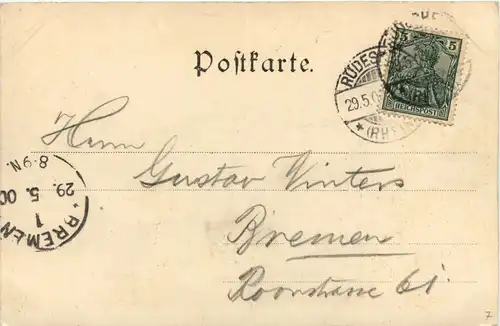 Postkarte.
5 5
REICHSPOST
RÜDES
29.5.0
* (RHEIN
Herrn
Gustav Winters
Bremen
Roonstrasse 61.
8-9N.
29. 5. 00
1
* BREMEN
7